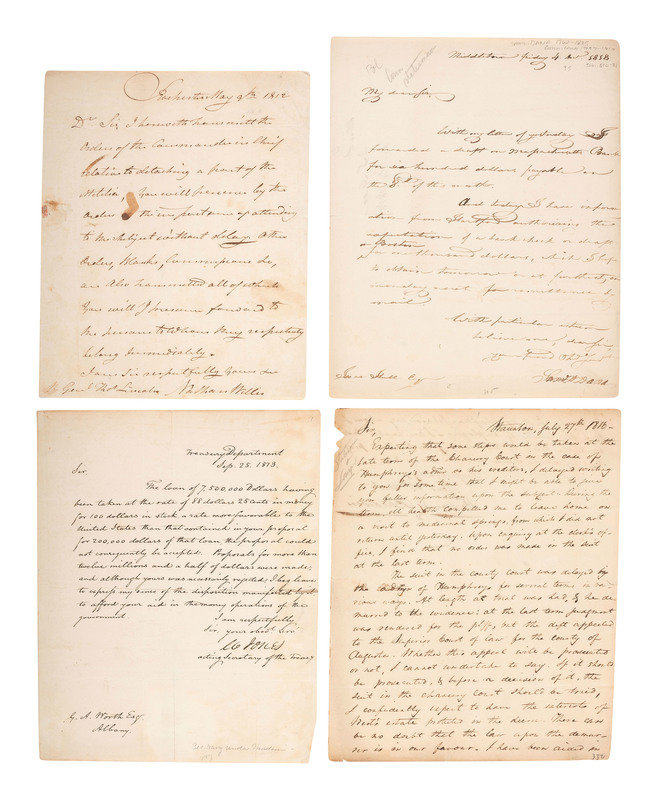 Rochester May 9th 1812
Dr Sir, I herewith transmit the
Orders of the Commander in Chief
relative to detaching a part of the
Militia, You will perceive by the
Orders the importance of attending
to the subject without delay. Other
Orders, Blanks, Commissions &c,
are also transmitted all of which
You will I presume forward to
the persons to whom they respectively
belong immediately.
I am Sir respectfully Yours &c
Genl. Thos Lincoln Nathan Willis
Middletown friday 4
My dear Sir,
With my letter of yesterday I
forwarded a draft on Massachusetts Bank
for six hundred dollars payable on
the 8th of this month.
And today I have inform
ation from authorising the
of a bank check or draft
on Boston
for one thousand dollars, which I hope
to obtain tomorrow or at furthest on
monday next for remittance by
mail
With particular esteem
believe me, dear Sir,
Treasury Department
Sep. 25. 1813.
Sir.
The loan of 7,500,000 Dollars having
been taken at the rate of 88 dollars 25 cents in money
for 100 dollars in stock a rate more favorable to the
United States than that contained in your proposal
for 200,000 dollars of that loan the proposal could
not consequently be accepted. Proposals for more than
twelve millions and a half of dollars were made;
and although yours was necessarily rejected I beg leave
to express my sense of the disposition manifested by it
to afford your aid in the money operations of the
government
I am respectfully,
Sir, your obedt. Servt
W Jones
acting Secretary of the Treasy
G. A. Worth Esq.
Albany.
Secretary under Madison
Staunton, July 27th 1816
Sir,
Expecting that some steps would be taken at the
late term of the Chancery Court in the case of
Humphreys's admr vs his creditors, I delayed writing
to you for some time that I might be able to give
you fuller information upon the subject. During the
term, ill health compelled me to leave home on
a visit to medicinal springs, from which I did not
return until yesterday. Upon enquiry at the clerk's of-
fice, I find that no order was made in the suit
at the last term.
The suit in the county court was delayed by
the of Humphreys for several terms, in va-
rious ways. At length a trial was had, & he de-
murred to the evidence; at the last term judgment
was rendered for the plff, but the deft appealed
to the Superior Court of law for the county of
Augusta. Whether this appeal will be prosecuted
or not, I cannot undertake to say. If it should
be prosecuted, & before a decision of it, the
suit in the chancery court should be tried,
I confidently expect to have the interests of
Scott's estate protected in the decree. There can
be no doubt that the law upon the demur-
rer is in our favour. I have been aided in